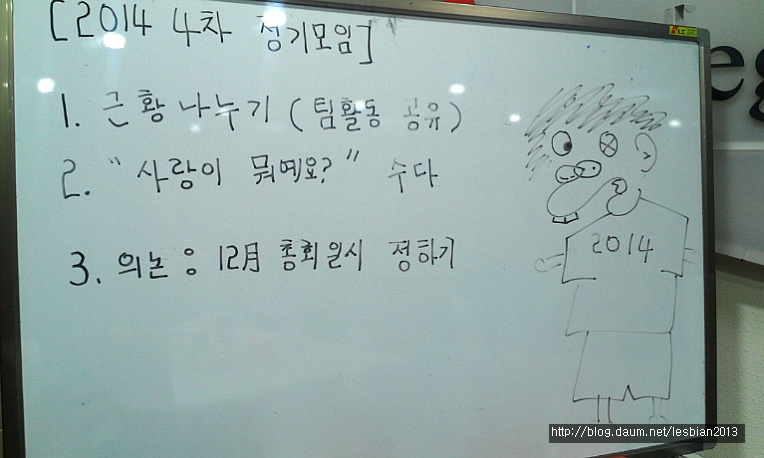 [2014 4차 정기모임]
1. 근황 나누기 (팀활동 공유)
2. "사랑이 뭐예요?" 수다
3. 의논 ㅇㅇ 12月 총회일시 정하기
2014
http://blog.daum.net/lesbian2013